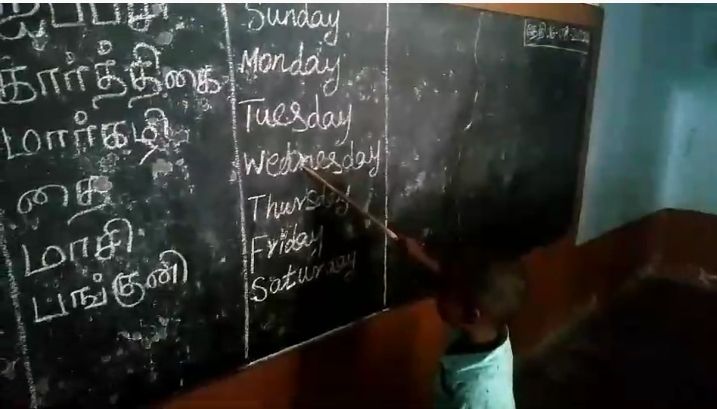 ஐப்பசி
கார்த்திகை
மார்கழி
தை
மாசி
பங்குனி
Sunday
Monday
Tuesday
Wednesday
Thursday
Friday
Saturday